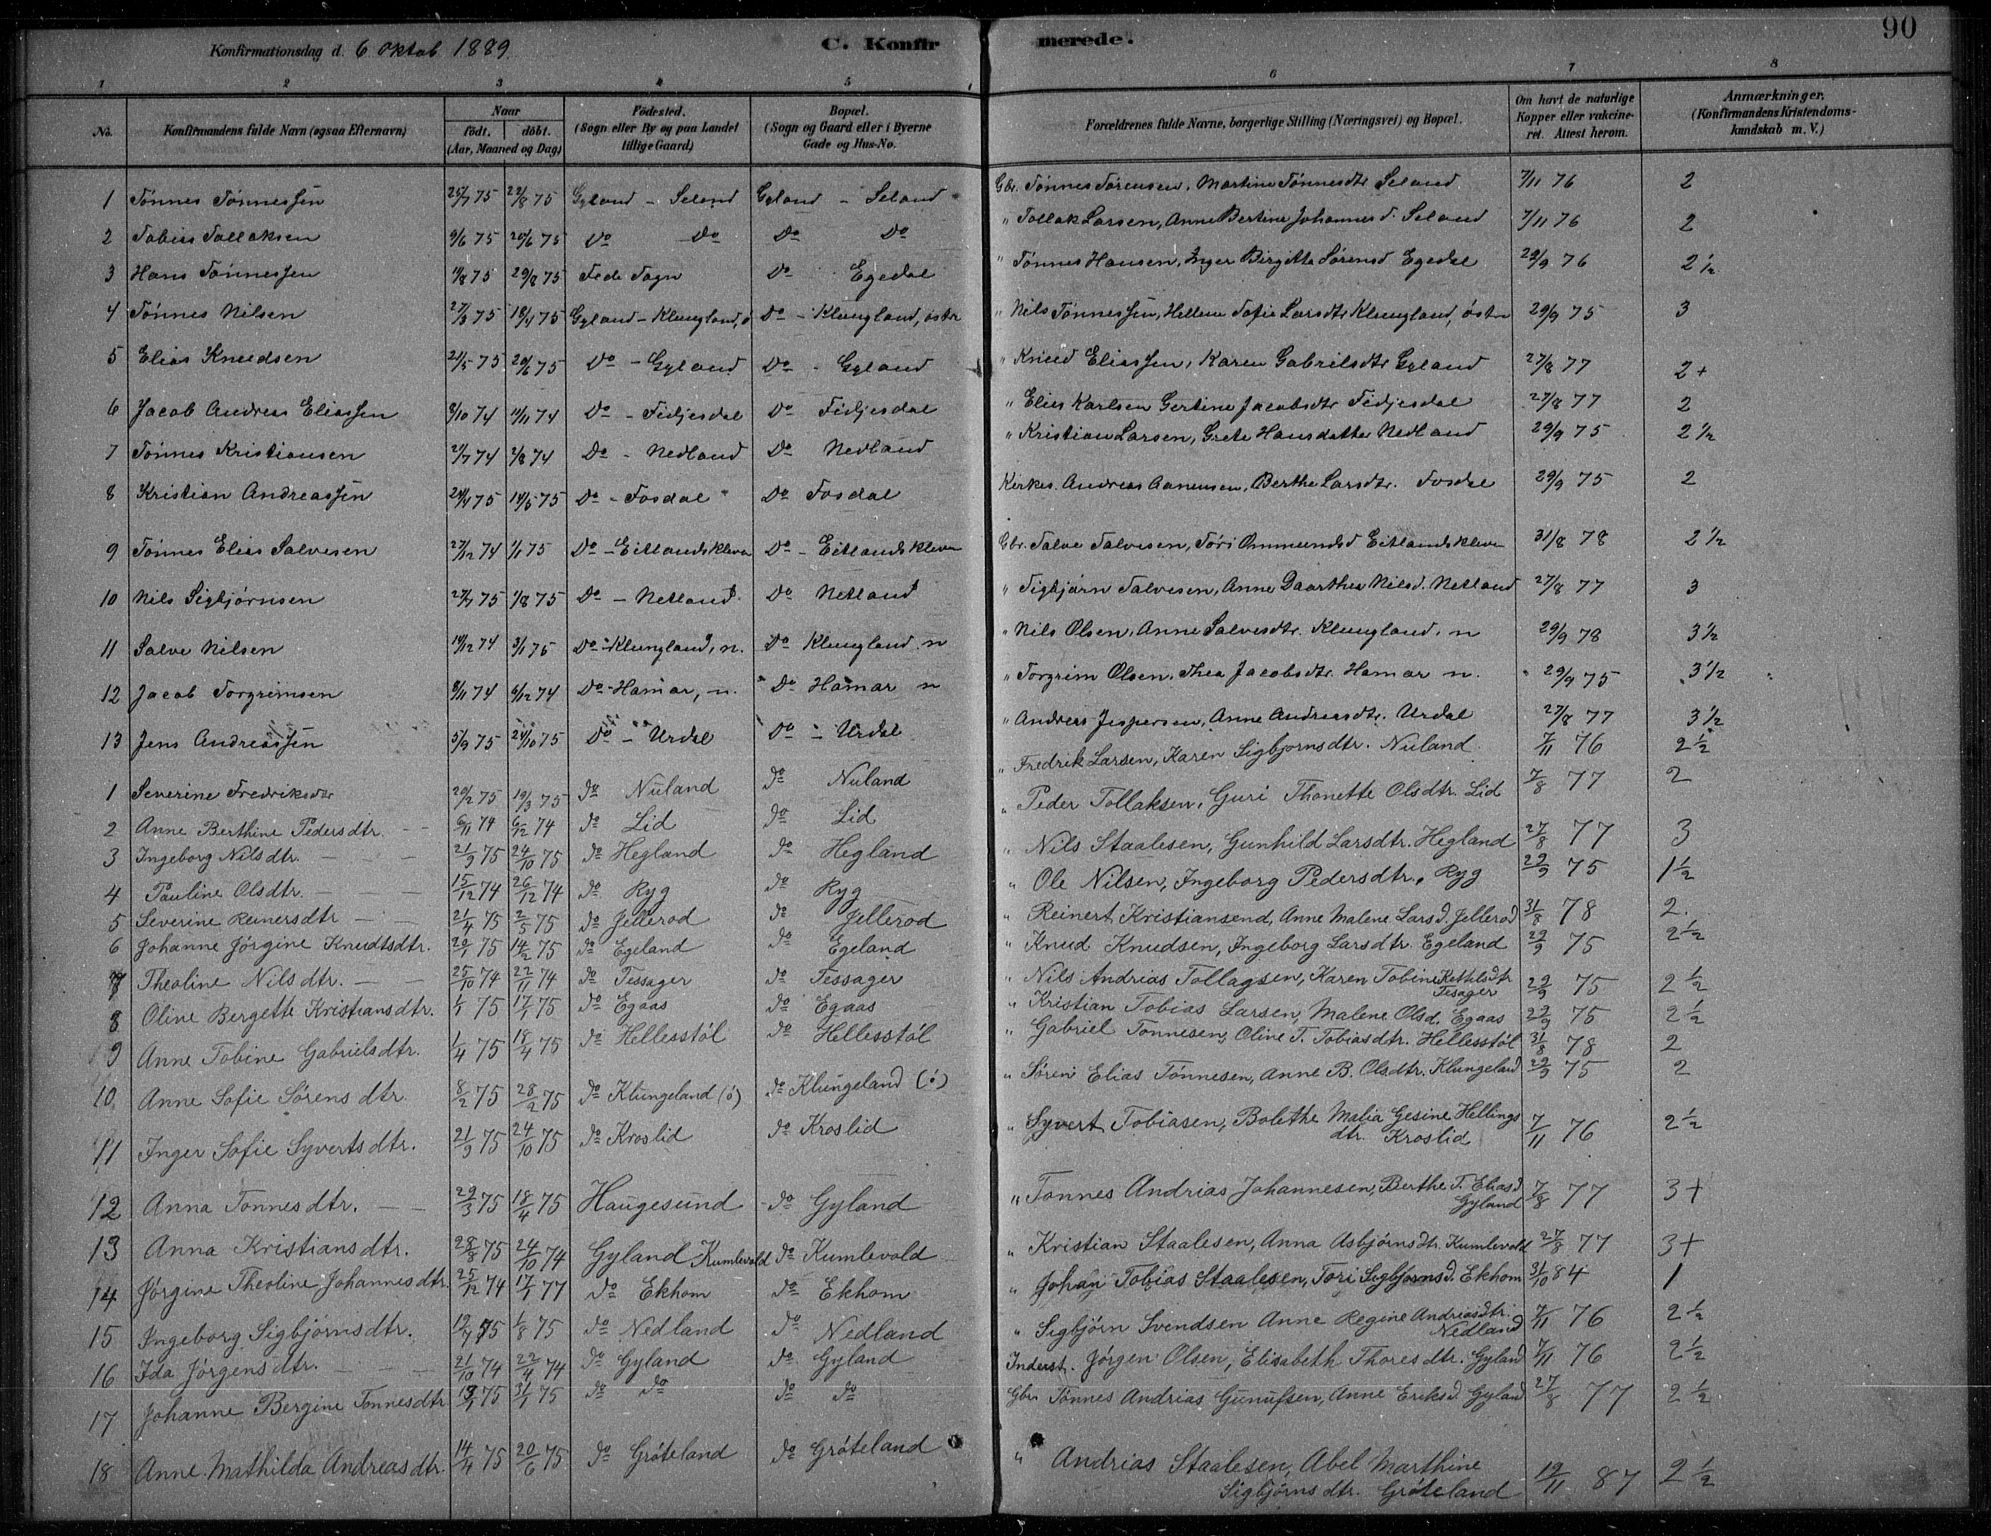 90
Konfirmationsdag d. 6 Oktob 1889.
C. Konfirmerede.
1 2 3 4 5 6 7 8
No. | Konfirmandens fulde Navn (ogsaa Efternavn) | Naar født. døbt. (Aar, Maaned og Dag) | Fødested. (Sogn eller By og paa Landet tillige Gaard) | Bopæl. (Sogn og Gaard eller i Byerne Gade og Hus-No. | Forældrenes fulde Navne, borgerlige Stilling (Næringsvei) og Bopæl. | Om havt de naturlige Kopper eller vakcineret. Attest herom. | Anmærkninger. (Konfirmandens Kristendomskundskab m. V.)
1 Tønnes Tønnessen 25/7 75 22/8 75 Gyland - Seland Gyland - Seland Gbr. Tønnes Sørensen, Martine Tønnesdtr Seland 7/11 76 2
2 Tobias Tollaksen 9/6 75 20/6 75 Do Do Do Do " Tollak Larsen, Anne Bertine Johannesd. Seland 7/11 76 2
3 Hans Tønnessen 1/8 75 29/8 75 Fede Sogn Do Egedal " Tønnes Hansen, Inger Birgitte Sørensd Egedal 29/9 76 2 1/2
4 Tønnes Nilsen 27/3 75 18/4 75 Gyland - Klungland, ö Do - Klungland, öster " Nils Tønnessen, Hellene Sofie Larsdtr Klungland, öster 29/9 75 3
5 Elias Knudsen 21/5 75 20/6 75 Do - Gyland Do - Gyland " Knud Eliassen, Karen Gabrielsdtr Gyland 27/8 77 2+
6 Jacob Andreas Eliassen 8/10 74 14/11 74 Do - Fidjesdal Do Fidjesdal " Elias Karlsen Gertine Jacobsdtr Fidjesdal 27/8 77 2
7 Tønnes Kristiansen 21/7 74 2/8 74 Do - Nedland Do Nedland " Kristian Larsen, Grete Hansdatter Nedland 29/9 75 2 1/2
8 Kristian Andreassen 24/4 75 14/5 75 Do - Fosdal Do Fosdal Kirkes. Andreas Aanensen, Berthe Larsdtr. Fosdal 29/9 75 2
9 Tønnes Elias Salvesen 27/12 74 1/1 75 Do - Eitlandskleven Do - Eitlandskleven Gbr. Salve Salvesen, Töri Ommundsd Eitlandskleven 31/8 78 2 1/2
10 Nils Sigbjørnsen 27/7 75 1/8 75 Do - Netland Do Netland " Sigbjørn Salvesen, Anne Daarthea Nilsd. Netland 27/8 77 3
11 Salve Nilsen 19/12 74 3/1 75 Do - Klungland, n. Do Klungland n " Nils Olsen, Anne Salvesdtr. Klungland, n 29/9 78 3 1/2
12 Jacob Torgrimsen 9/11 74 6/12 74 Do - Hamar, n. Do Hamar n " Torgrim Olsen, Thea Jacobsdtr Hamar n. 29/9 75 3 1/2
13 Jens Andreassen 5/9 75 24/10 75 Do - Urdal Do - Urdal " Andreas Jespersen, Anne Andreasdtr. Urdal 27/8 77 3 1/2
1 Severine Fredriksdtr 20/2 75 19/3 75 do Nuland do Nuland " Fredrik Larsen, Karen Sigbjornsdtr. Nuland 7/11 76 2 1/2
2 Anne Berthine Pedersdtr. 6/11 74 6/12 74 do Lid do Lid " Peder Tollaksen, Guri Thonette Olsdtr. Lid 7/8 77 2
3 Ingeborg Nilsdtr. 21/9 75 24/10 75 do Hegland do Hegland " Nils Staalesen, Gunhild Larsdtr. Hegland 27/8 77 3
4 Pauline Olsdtr. 15/12 74 26/12 74 do Ryg do Ryg " Ole Nilsen, Ingeborg Pedersdtr, Ryg 29/9 75 1 1/2
5 Severine Reinersdtr 21/4 75 2/5 75 do Jellerod do Jellerod " Reinert Kristiansend, Anne Malene Larsd. Jellerod 31/8 78 2.
6 Johanne Jörgine Knudtsdtr. 20/1 75 14/2 75 do Egeland do Egeland " Knud Knudsen, Ingeborg Larsdtr. Egeland 29/9 75 2 1/2
7 Theoline Nilsdtr. 25/10 74 22/11 74 do Tessager do Tessager " Nils Andrias Tollagsen, Karen Tobine Kettelsdtr Tesager 29/9 75 2 1/2
8 Oline Bergette Kristiansdtr. 1/1 75 17/1 75 do Egaas do Egaas " Kristian Tobias Larsen, Malene Olsd. Egaas 29/9 75 2 1/2
9 Anne Tobine Gabrielsdtr. 1/4 75 18/4 75 do Hellesstöl do Hellesstöl " Gabriel Tonnesen, Oline T. Tobiasdtr. Hellesstöl 31/8 78 2
10 Anne Sofie Sørensdtr. 8/2 75 28/2 75 do Klungeland (ö) do Klungeland (ö) " Søren Elias Tönnesen, Anne B. Olsdtr. Klungeland 29/9 75 2
11 Inger Sofie Syvertsdtr. 21/9 75 24/10 75 do Kroslid do Kroslid " Syvert Tobiasen, Bolethe Malia Gesine Hellings dtr. Kroslid 7/11 76 2 1/2
12 Anna Tonnesdtr. 29/3 75 18/4 75 Haugesund do Gyland " Tonnes Andrias Johannesen, Berthe T. Eliasd Gyland 7/8 77 3+
13 Anna Kristiansdtr. 28/8 75 24/10 74 Gyland Kumlevold do Kumlevold " Kristian Staalesen, Anna Asbjörnsdtr. Kumlevold 27/8 77 3+
14 Jørgine Theoline Johannesdtr. 25/12 74 17/1 77 do Ekhom do Ekhom " Johan Tobias Staalesen, Tori Sigbjornsd. Ekhom 31/10 84 1
15 Ingeborg Sigbjørnsdtr. 12/7 75 1/8 75 do Nedland do Nedland " Sigbjörn Svendsen Anne Regine Andreasdtr. Nedland 7/11 76 2 1/2
16 Ida Jørgensdtr. 21/10 74 22/4 74 do Gyland do Gyland Inderst. Jørgen Olsen, Elisabeth Thoresdtr. Gyland 7/11 76 2 1/2
17 Johanne Bergine Tonnesdtr 13/1 75 31/1 75 do do do do Gbr Tönnes Andrias Gunufsen, Anne Eriksd. Gyland 27/8 77 2 1/2
18 Anne Mathilda Andreasdtr. 14/4 75 20/6 75 do Gröteland do Gröteland " Andrias Staalesen, Abel Marthine Sigbjörnsdtr. Gröteland 19/11 87 2 1/2